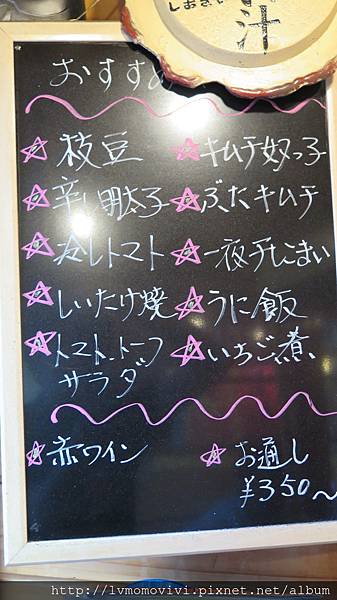 しおさい
汁
おすすめ
☆枝豆
☆辛し明太子
☆冷しトマト
☆しいたけ焼
☆トマト、トーフ
サラダ
☆キムチ奴っ子
☆ぶたキムチ
☆一夜干しこまい
☆うに飯
☆いちご煮
☆赤ワイン
☆お通し
¥350〜
http://lvmomovivi.pixnet.net/album